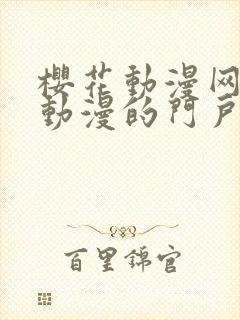 櫻花動漫网
動漫的門戶
百里錦官